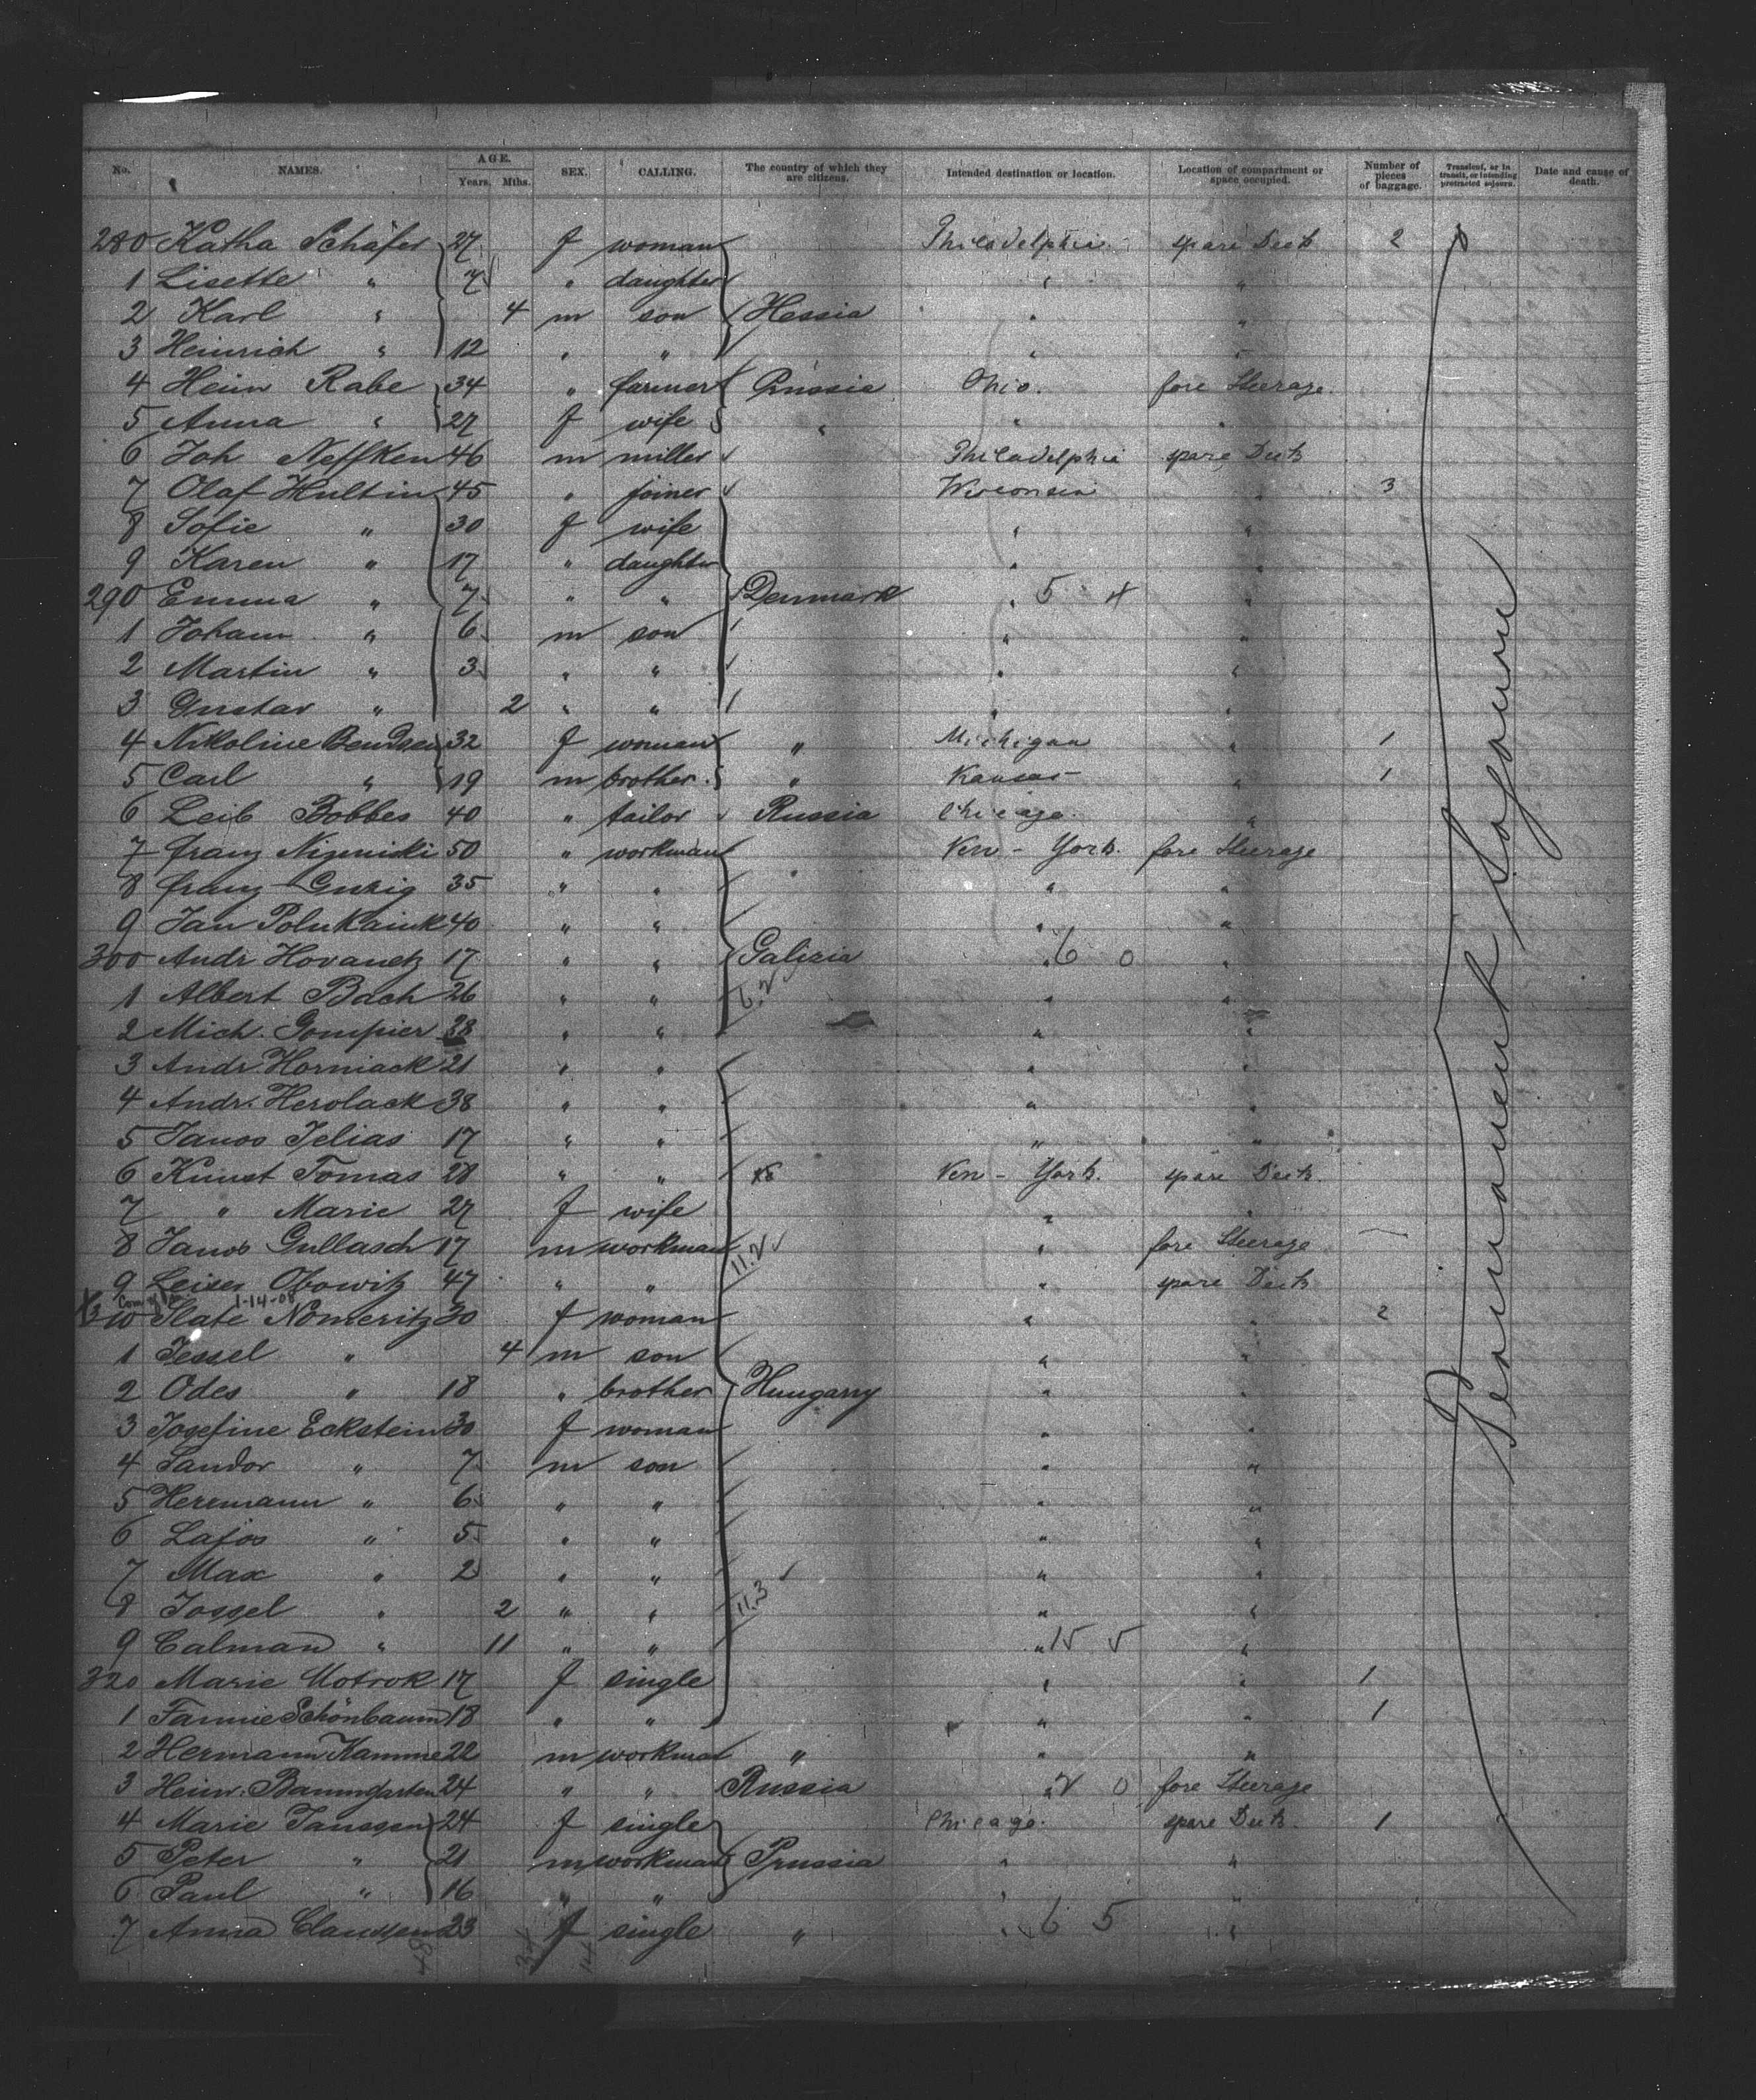 No. NAMES. AGE. Years. Mths. SEX. CALLING. The country of which they are citizens. Intended destination or location. Location of compartment or space occupied. Number of pieces of baggage. Transient, or in transit, or intending protracted sojourn. Date and cause of death.
280 Katha Schäfer 27 f woman Philadelphia spare Deck 2
1 Lisette " 7 " daughter " "
2 Karl " 4 m son Hessia " "
3 Heinrich " 12 " " " "
4 Heinr Rabe 34 " farmer Prussia Ohio. fore Steerage
5 Anna " 27 f wife " " "
6 Joh Neffken 46 m miller Philadelphia spare Deck
7 Olaf Hultin 45 " joiner Wisconsin " 3
8 Sofie " 30 f wife " "
9 Karen " 17 " daughter " "
290 Emma " 7 " " Denmark " 5 4 "
1 Johann " 6 m son " "
2 Martin " 3 " " " "
3 Gustav " 2 " " " "
4 Nikoline Bendsen 32 f woman " Michigan " 1
5 Carl " 19 m brother " Kansas " 1
6 Leib Bobbes 40 " tailor Russia Chicago. "
7 franz Nizinski 50 " workman New-York. fore Steerage
8 franz Guzig 35 " " " "
9 Jan Polukaink 40 " " " "
300 Andr Hovanetz 17 " " Galizia " 6 0 "
1 Albert Bach 26 " " 6.2 " "
2 Mich. Gompier 28 " " " "
3 Andr Horniack 21 " " " "
4 Andr. Herolack 38 " " " "
5 Janos Jelias 17 " " " "
6 Kunst Tomas 28 " " New-York. spare Deck.
7 " Marie 27 f wife " "
8 Janos Gullasch 17 m workman 11.2 " fore Steerage
9 Leiser Obowitz 47 " " " spare Deck
1-14-08
310 Slate Nomeritz 30 f woman " " 2
1 Jessel " 4 m son " "
2 Odes " 18 " brother Hungarry " "
3 Josefine Eckstein 30 f woman " "
4 Sandor " 7 m son " "
5 Hermann " 6 " " " "
6 Lajos " 5 " " " "
7 Max " 2 " " " "
8 Jossel " 2 " " 11.3 " "
9 Calman " 11 " " " 15 5 "
320 Marie Motrok 17 f single " " 1
1 Fannie Schönbaum 18 " " " " 1
2 Hermann Kamme 22 m workman " " "
3 Heinr. Baumgarten 24 " " Russia " 2 0 fore Steerage
4 Marie Janssen 24 f single Chicago. spare Deck. 1
5 Peter " 21 m workman Prussia " "
6 Paul " 16 " " " "
7 Anna Claussen 23 f single " " 6 5 "
Permanent Sojourn